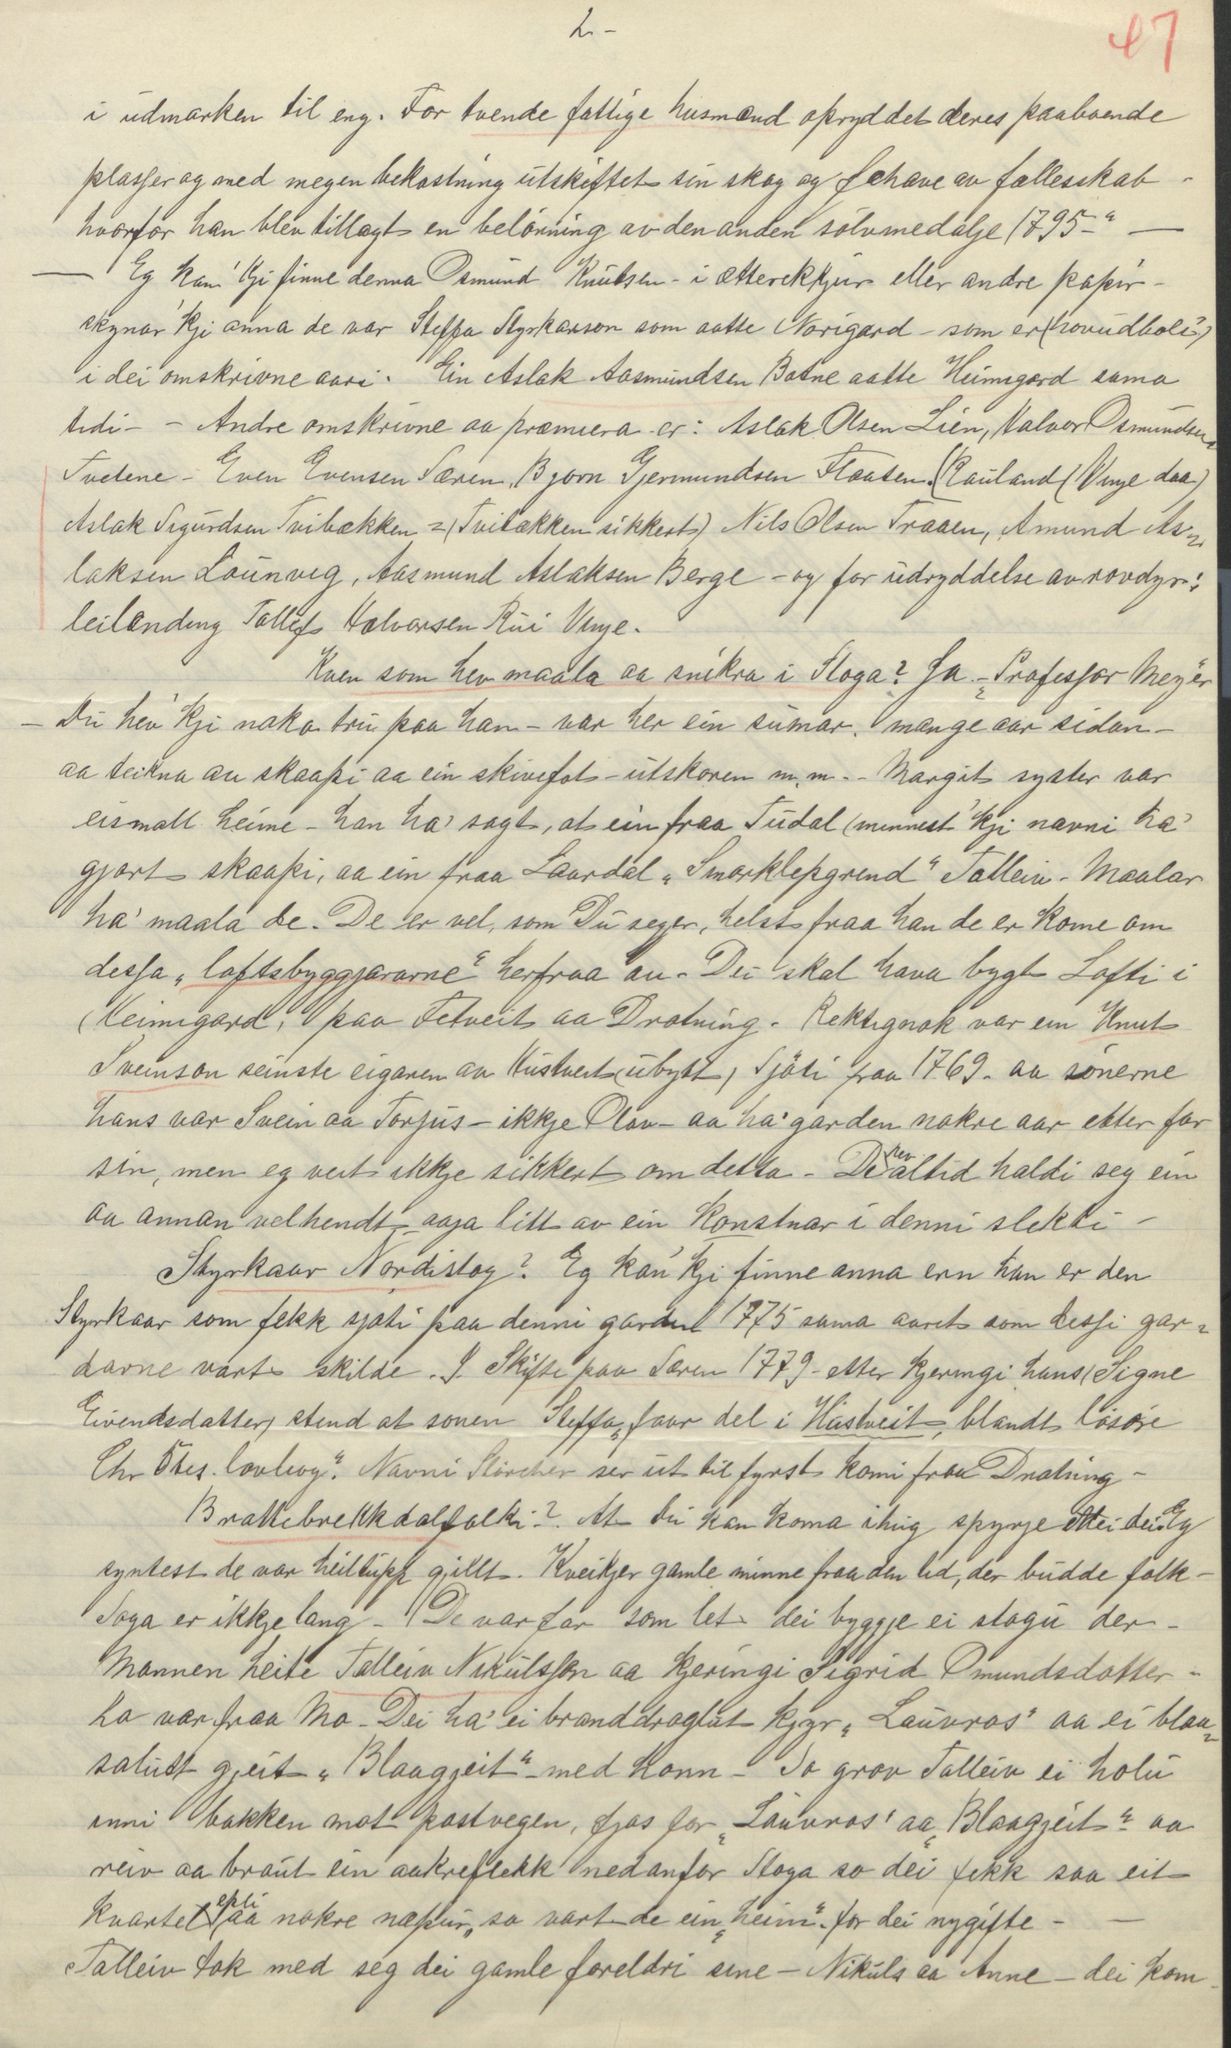 2 -
47
i udmarken til eng. For tvende fattige husmænd opryddet deres paaboende
plasser og med megen bekostning utskiftet sin skog og fehave av fællesskab -
hvorfor han blev tillagt en belönning av den anden sölvmedalje 1795 -" —
— Eg kan' kji finne denna Osmund Knutsen - i ætterekkjur eller andre papir -
skynar' kji anna de var Steffa Styrkarson som aatte Norigard - som er (hovudböli?)
i dei omskrivne aari. Ein Aslak Aasmundsen Botne aatte Heimigard sama
tidi - - Andre omskrivne aa præmiera er: Aslak Olsen Lien, Halvor Osmundsen
Tvetene - Even Evensen Særen, Bjørn Gjermundsen Flaaten (Rauland (Vinje daa)
Aslak Sigurdsen Tvibækken = (Tvitækken sikkert) Nils Olsen Traaen, Amund As-
laksen Löunveg, Aasmund Aslaksen Berge - og for udryddelse av rovdyr:
leilænding Tallefs Halvorsen Rui Vinje.
Kven som hev maala aa snikra i Stoga? Ja - Professor Meyer
- Du hev' kji noko tru paa han - var her ein sumar, mange aar sidan -
aa teikna au skaapi aa ein skivefot - utskoren m.m. - Margit syster var
eismall heime - han ha' sagt, at ein fraa Tudal (minnest 'kji navni ha'
gjort skaapi, aa ein fraa Laardal „Smørklepgrend" Talleiv - Maalar
ha' maala de. De er vel, som Du seger, helst fraa han de er kome om
dessa „loftsbyggjararne" herfraa au. Dei skal hava bygt Lofti i
(Heimigard, paa Tetveit aa Dratning. Rektignok var ein Knut
Sveinson seinste eigaren au Hustveit (ubygt) Sjöti fraa 1769 - aa sönerne
hans var Svein aa Torjus - ikkje Olav - aa ha' garden nokre aar etter far
sin, men eg veit ikkje sikkert om detta - De hev altid haldi seg ein
aa annan velhendt - aaja litt av ein konstnar i denni slekti -
Styrkaar Nordistog? Eg kan' kji finne anna enn han er den
Styrkaar som fekk sjøti paa denni garden 1775 sama aaret som dessi gar-
darne vart skilde. I Skifte paa Særen 1779 - etter kjeringi hans (Signe
Eivendsdatter) stend at sonen Steffa „faar del i Hustveit, blandt lösöre
Chr. Ötes. lovbog". Navni Störcher ser ut til fyrst komi fraa Dratning -
Brattebrekkdalfolki? At du kan koma ihug spyrje ettei dei. Eg
syntest de var heiltupp gillt. Kveikjer gamle minne fraa den tid, der budde folk -
Soga er ikkje lang - De var far som let dei byggje ei stogu der -
Mannen heite Talleiv Nikulsson aa kjeringi Sigrid Omundsdotter -
ho var fraa Mo - Dei ha' ei branddroglut kjyr „Lauvros" aa ei blaa-
salutt gjeit „Blaagjeit" - med honn - So grov Talleiv ei holu
inni bakken mot postvegen, fjos for „Lauvros' aa „Blaagjeit" - aa
reiv aa braut ein aakreflekk nedanfor Stoga so dei fekk saa eit
kvartel epli aa nokre næpur, so vart de ein „heim" for dei nygifte - —
Talleiv tok med seg dei gamle foreldri sine - Nikuls aa Anne - dei kom